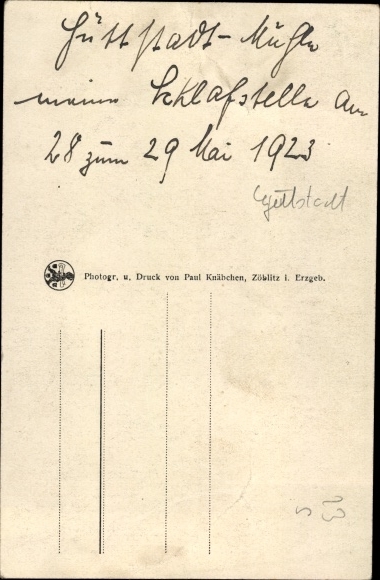 Hüttstadt-Mühle
meine Schlafstelle am
28 zum 29 Mai 1923
Hüttstadt
Photogr. u. Druck von Paul Knäbchen, Zöblitz i. Erzgeb.